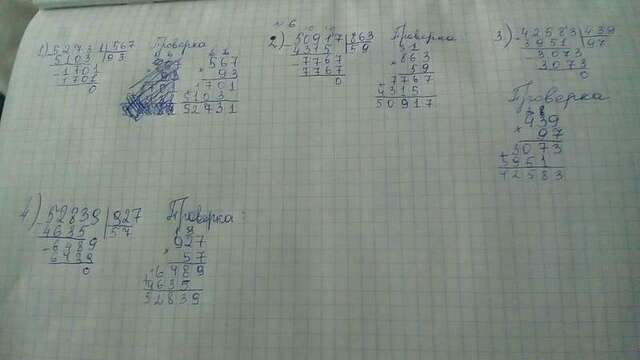 № 6
1) 52731 | 567
5103 | 93
- 1701
1701
0
Проверка
6 6
567
× 93
1701
5103
52731
2) - 50917 | 863
4315 | 59
- 7767
7767
0
Проверка:
5 1
863
× 59
7767
4315
50917
3) - 42583 | 439
3951 | 97
- 3073
3073
0
Проверка
439
× 97
3073
3951
42583
4) - 52839 | 927
4635 | 57
- 6489
6489
0
Проверка:
927
× 57
6489
4635
52839